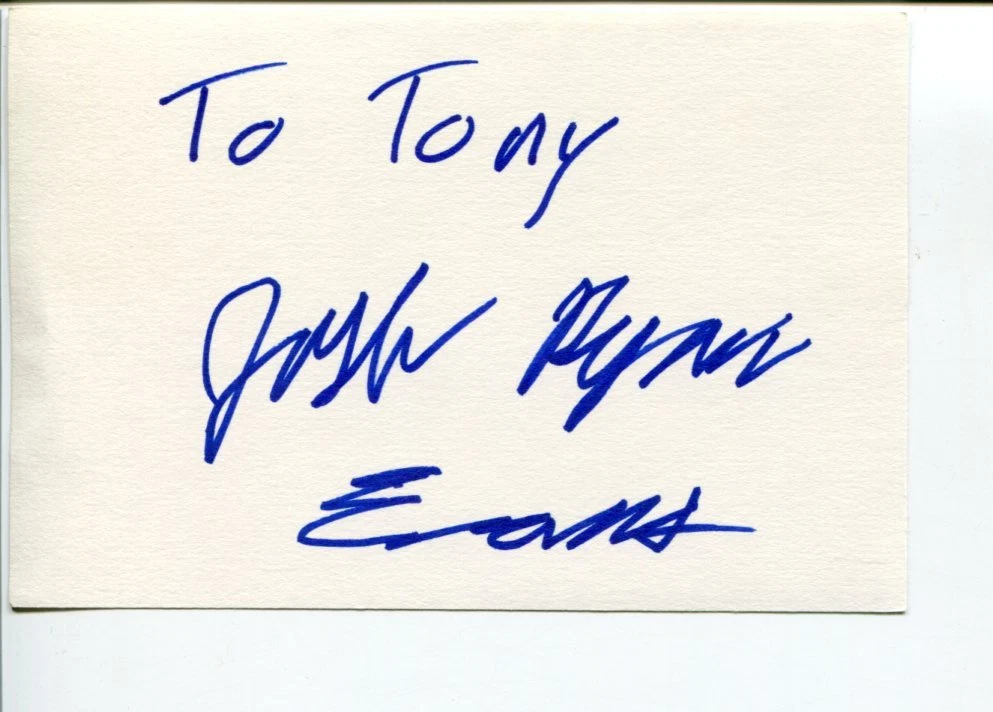 To Tony
Josh Ryan
Evans